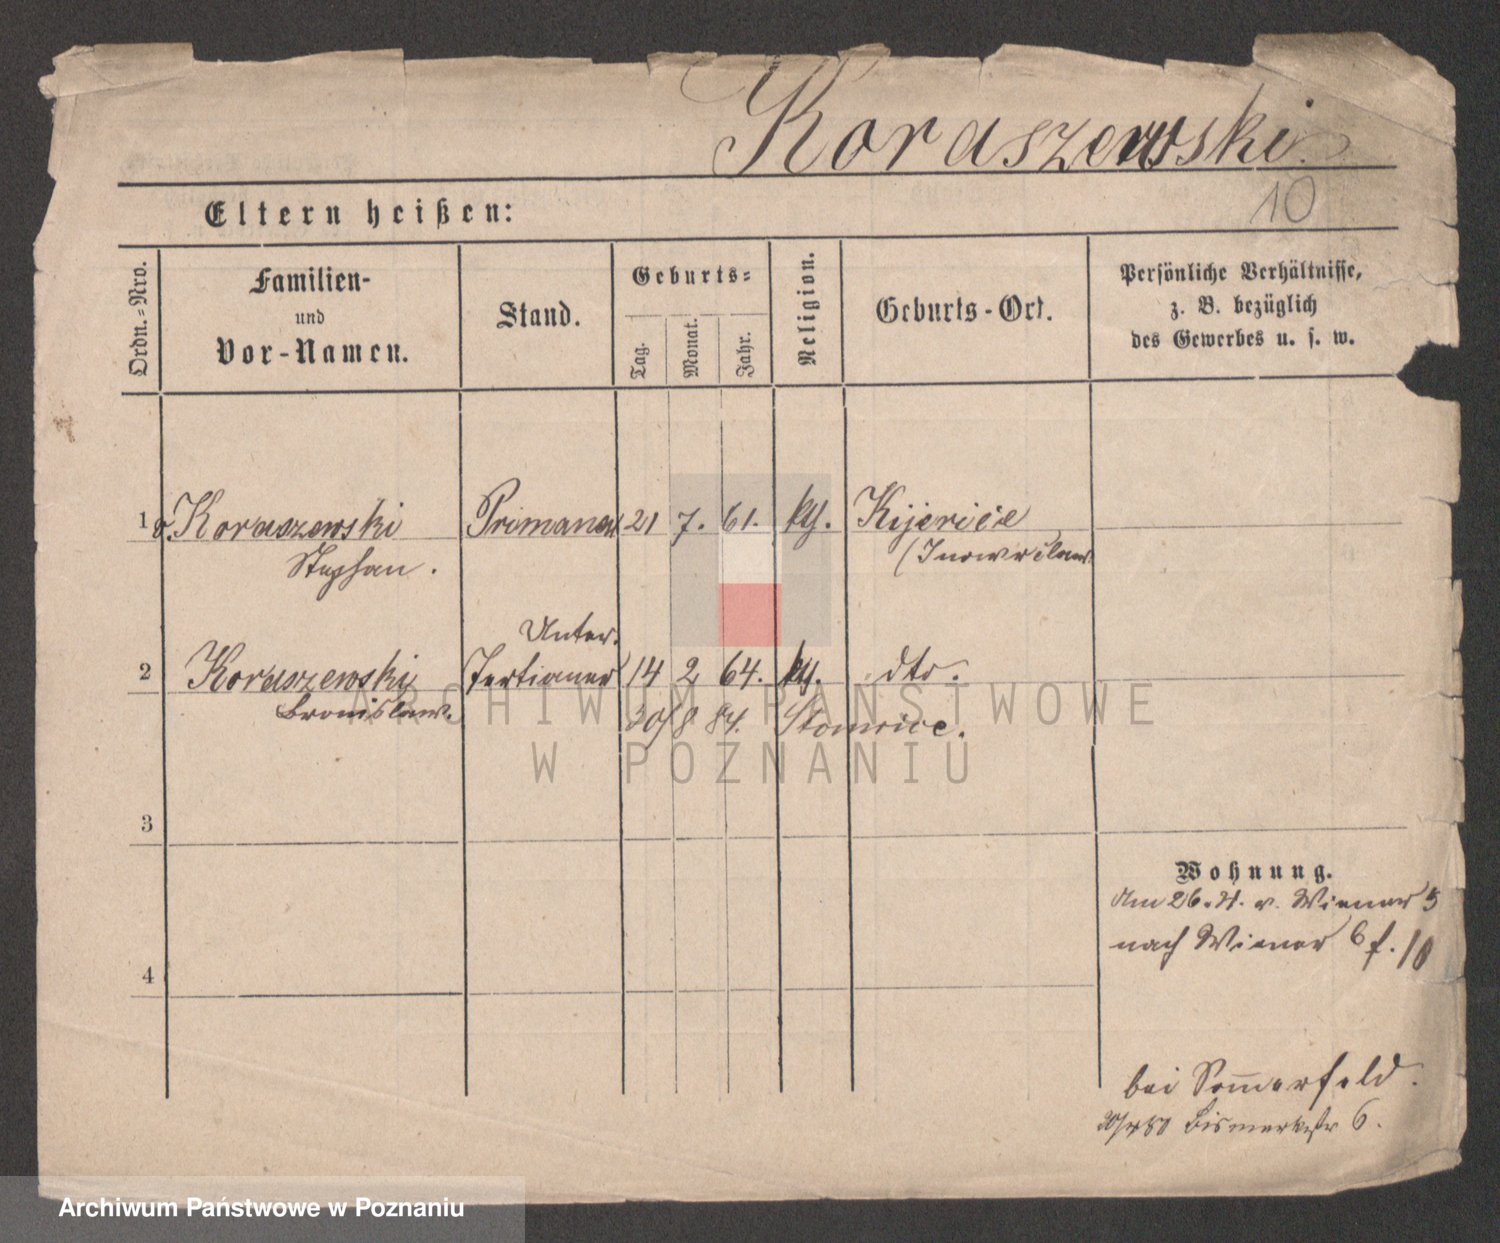 Koraszewski.
10
Eltern heißen:
Ordn.-Nro.
Familien-
und
Vor-Namen.
Stand.
Geburts-
Tag.
Monat.
Jahr.
Religion.
Geburts-Ort.
Persönliche Verhältnisse,
z. B. bezüglich
des Gewerbes u. s. w.
1 v. Koraszewski Primaner 21 7. 61. kth. Kijewice
Stephan. (Inowrclaw.
Unter.
2 Koraszewski Tertianer 14 2 64. kth. dto.
Bronislaw. 30/8 84.
ARCHIWUM PAŃSTWOWE
W POZNANIU
3
Wohnung.
Am 26.4. v. Wiener 5
nach Wiener 6 f. 10
4
bei Sommerfeld.
Bismarkstr 6.
Archiwum Państwowe w Poznaniu